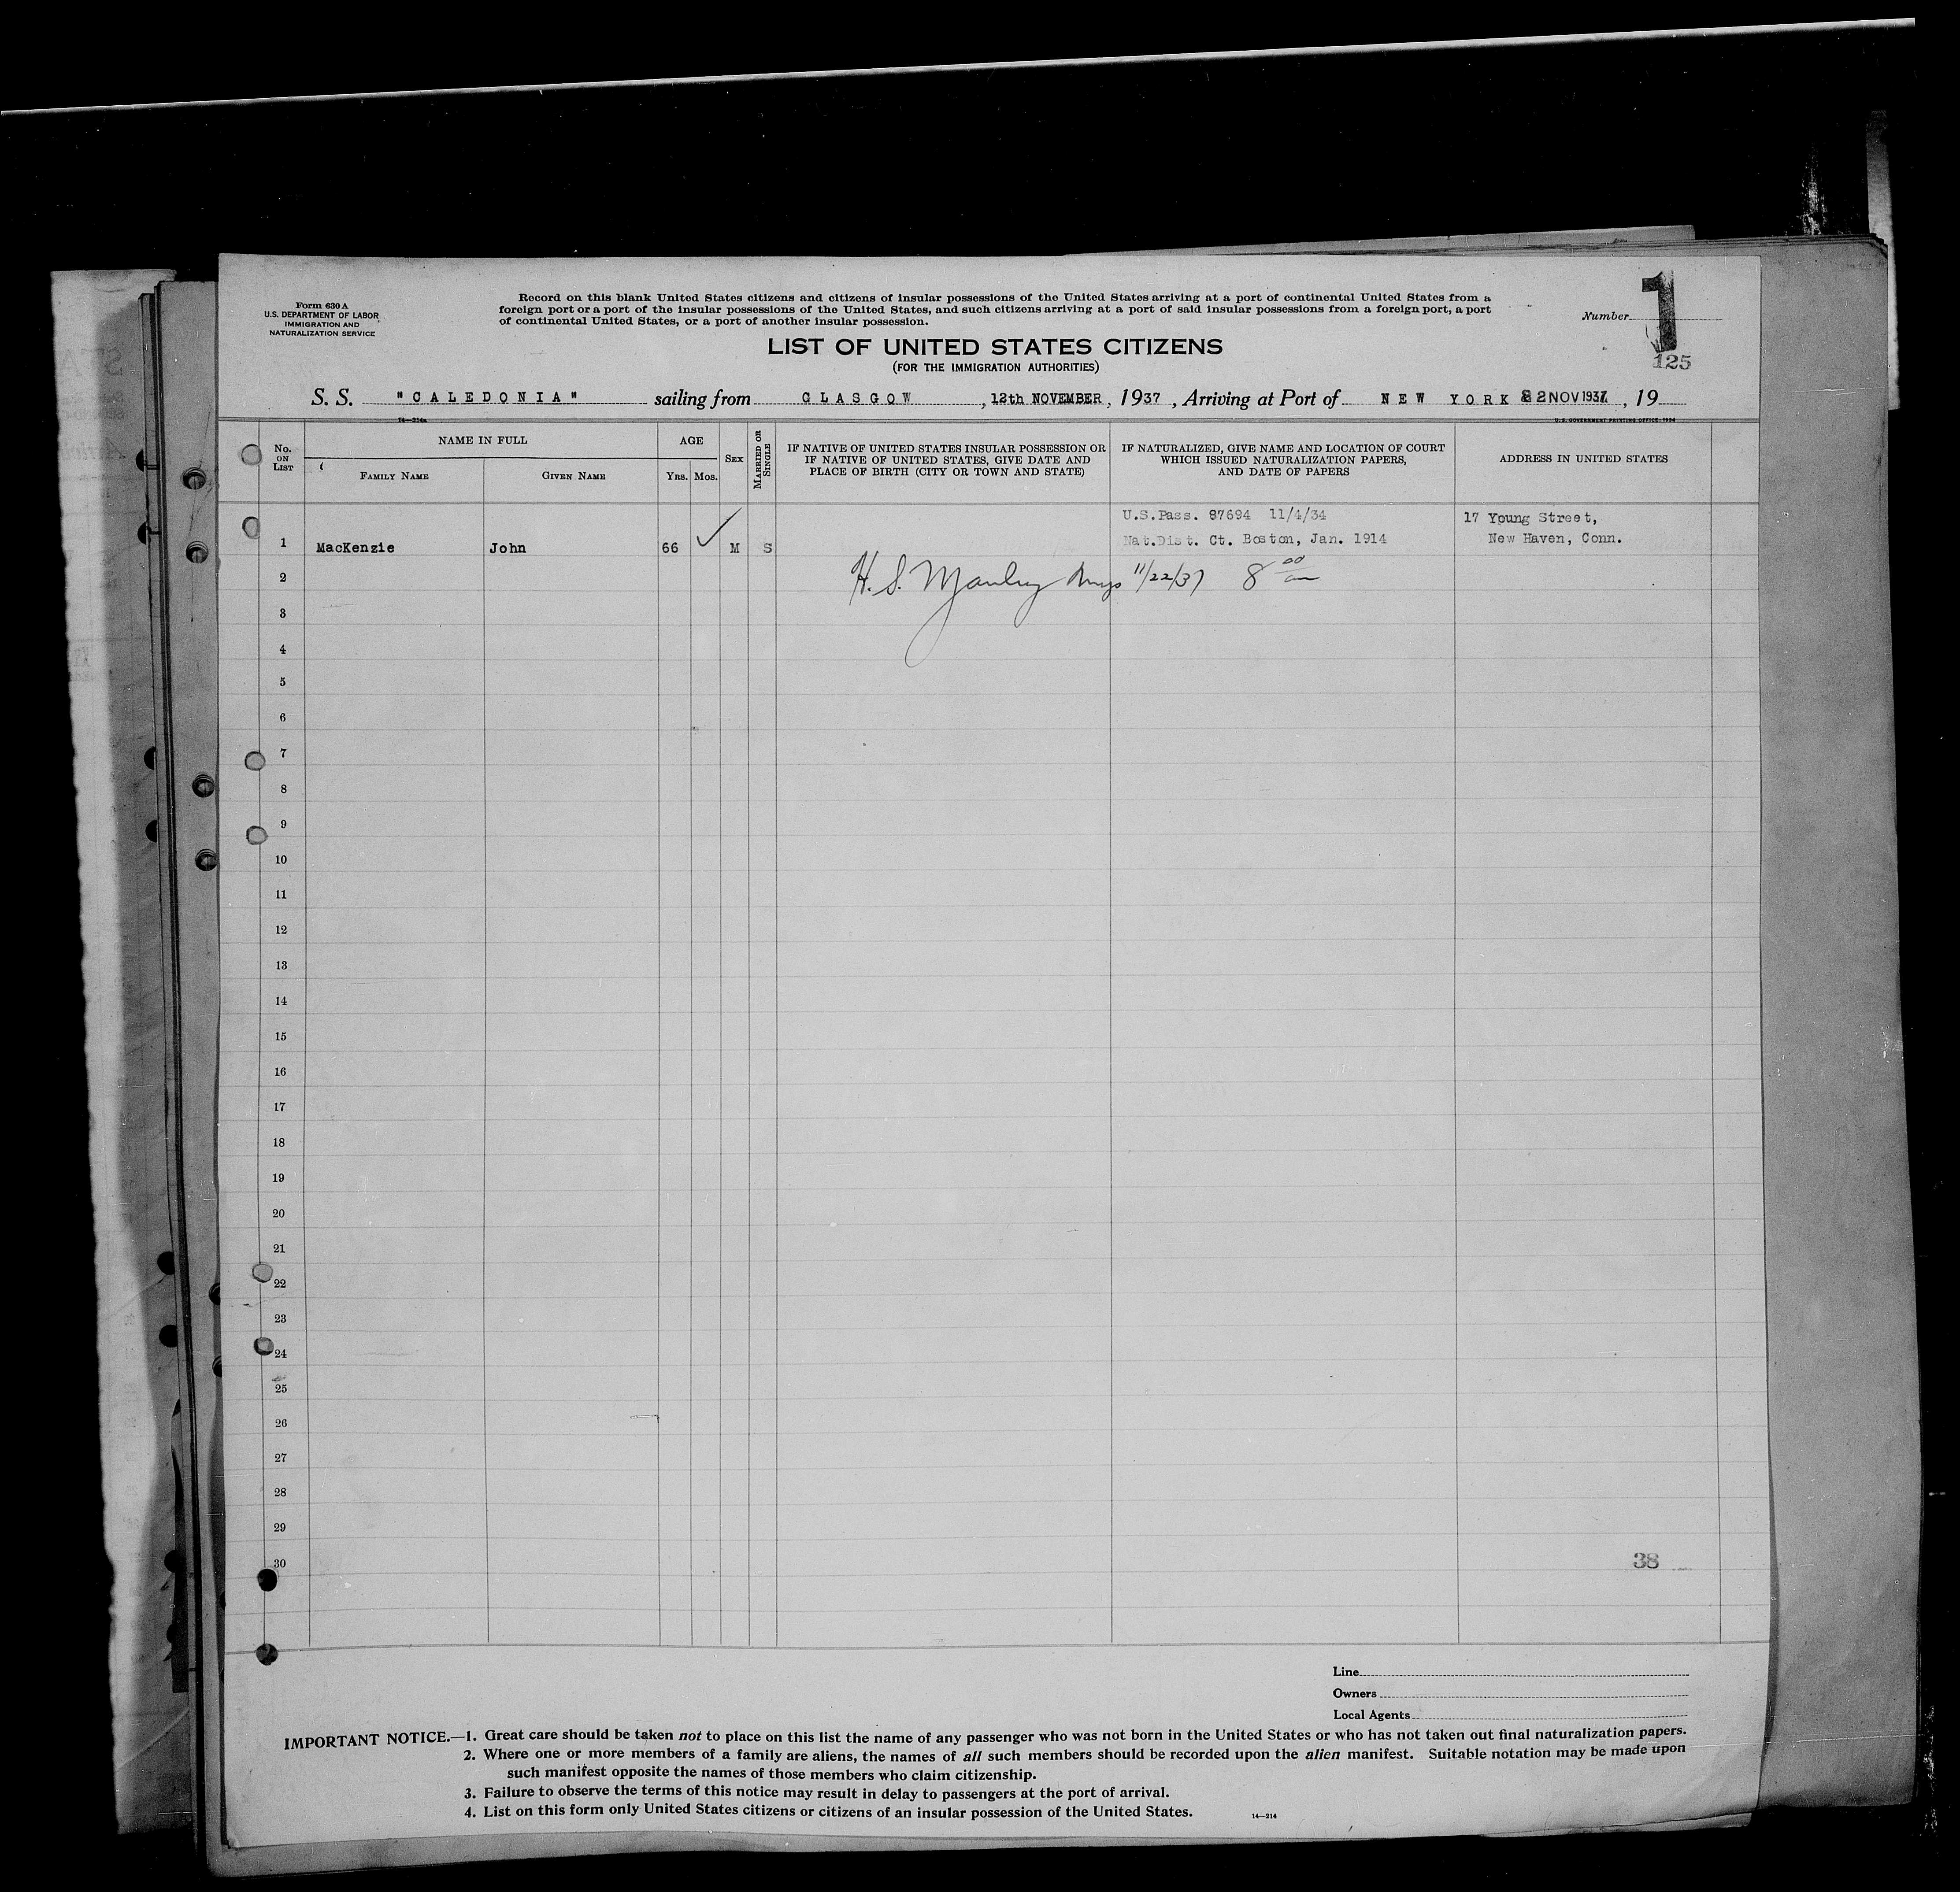 Form 630 A
U.S. DEPARTMENT OF LABOR
IMMIGRATION AND
NATURALIZATION SERVICE
Record on this blank United States citizens and citizens of insular possessions of the United States arriving at a port of continental United States from a
foreign port or a port of the insular possessions of the United States, and such citizens arriving at a port of said insular possessions from a foreign port, a port
of continental United States, or a port of another insular possession.
Number 1
125
LIST OF UNITED STATES CITIZENS
(FOR THE IMMIGRATION AUTHORITIES)
S. S. "CALEDONIA" sailing from GLASGOW, 12th NOVEMBER, 1937, Arriving at Port of NEW YORK 22 NOV 1937, 19
14—214a
U. S. GOVERNMENT PRINTING OFFICE: 1934
No. ON LIST
NAME IN FULL
FAMILY NAME
GIVEN NAME
AGE
YRS. MOS.
SEX
MARRIED OR SINGLE
IF NATIVE OF UNITED STATES INSULAR POSSESSION OR
IF NATIVE OF UNITED STATES, GIVE DATE AND
PLACE OF BIRTH (CITY OR TOWN AND STATE)
IF NATURALIZED, GIVE NAME AND LOCATION OF COURT
WHICH ISSUED NATURALIZATION PAPERS,
AND DATE OF PAPERS
ADDRESS IN UNITED STATES
U.S.Pass. 87694 11/4/34 17 Young Street,
1 MacKenzie John 66 ✓ M S Nat.Dist. Ct. Boston, Jan. 1914 New Haven, Conn.
2 H. S. 11/22/37 8 00
3
4
5
6
7
8
9
10
11
12
13
14
15
16
17
18
19
20
21
22
23
24
25
26
27
28
29
30
38
Line
Owners
Local Agents
IMPORTANT NOTICE.—1. Great care should be taken not to place on this list the name of any passenger who was not born in the United States or who has not taken out final naturalization papers.
2. Where one or more members of a family are aliens, the names of all such members should be recorded upon the alien manifest. Suitable notation may be made upon
such manifest opposite the names of those members who claim citizenship.
3. Failure to observe the terms of this notice may result in delay to passengers at the port of arrival.
4. List on this form only United States citizens or citizens of an insular possession of the United States.
14—214